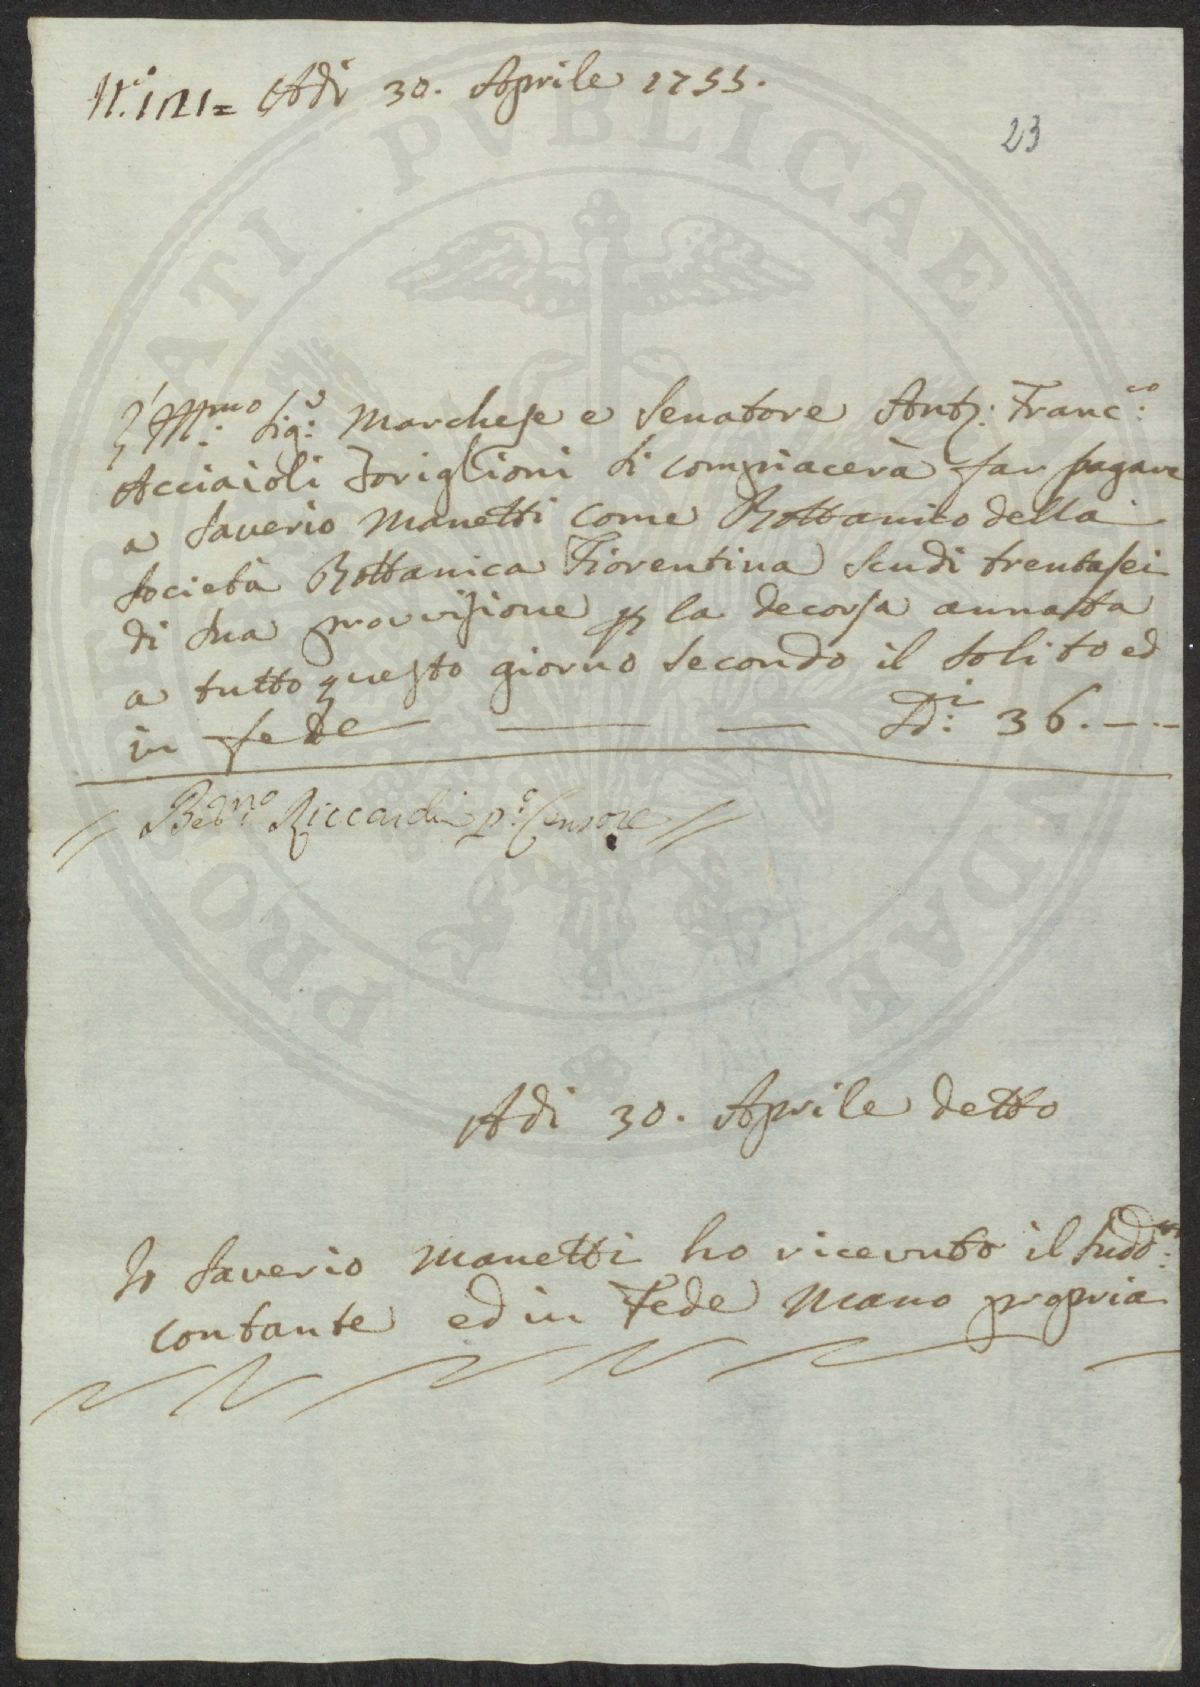 Adi 30. Aprile 1755.
23
L'Ill:mo Sig:r Marchese e Senatore Ant:o Franc:co
Acciaioli Toriglioni si compiacerà far pagare
a Saverio Manetti come Bottanico della
Società Bottanica Fiorentina scudi trentasei
di sua provvisione p la decorsa annata
a tutto questo giorno secondo il solito ed
in fede D:i 36.
Riccardi p:o Censore
Adi 30. Aprile detto
Io Saverio Manetti ho ricevuto il sudd:o
contante ed in Fede mano propria
PROSPERITATI PVBLICAE